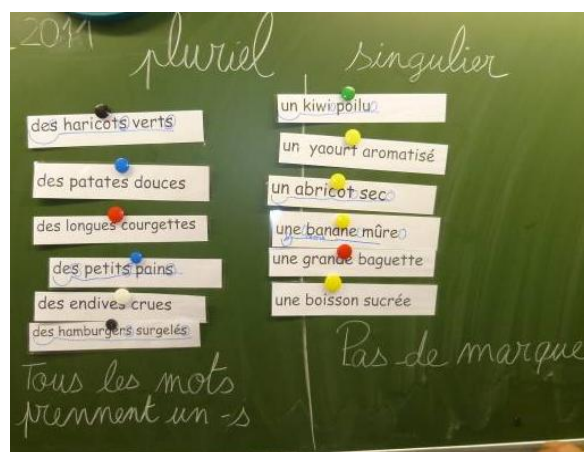 2011
pluriel
des haricots verts
des patates douces
des longues courgettes
des petits pains
des endives crues
des hamburgers surgelés
Tous les mots
prennent un -s
singulier
un kiwi poilu
un yaourt aromatisé
un abricot sec
une banane mûre
une grande baguette
une boisson sucrée
Pas de marque